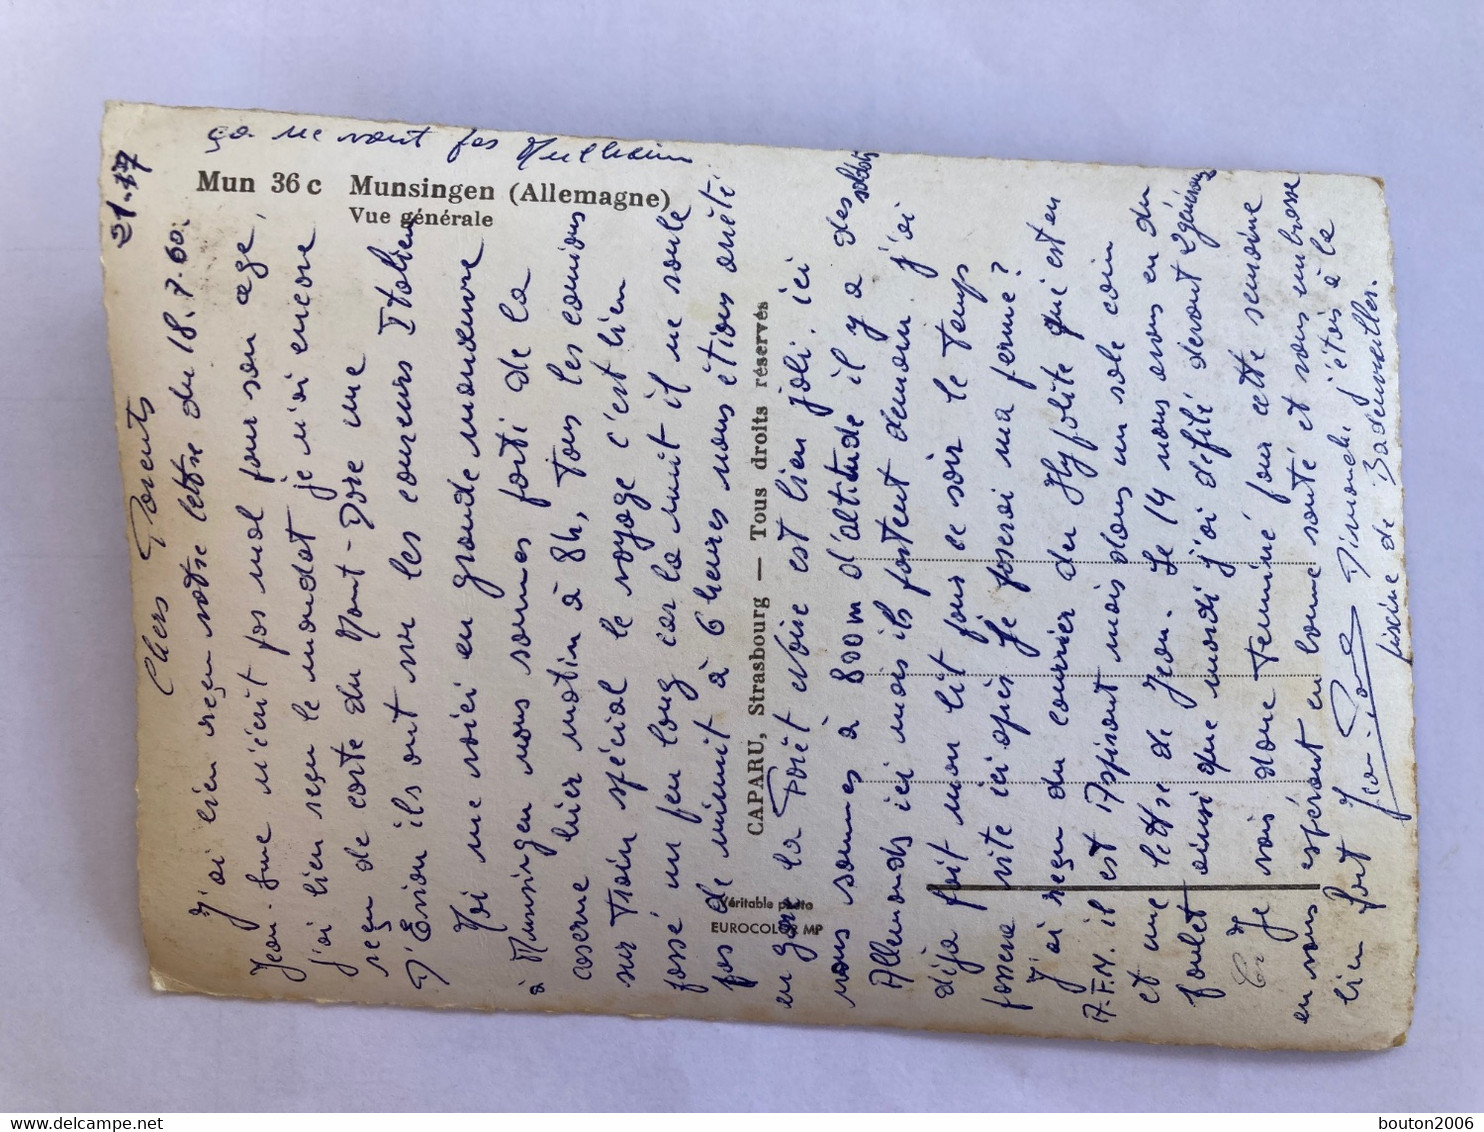 ça ne vaut pas Mulheim
Mun 36 c Munsingen (Allemagne)
Vue générale
Véritable photo
EUROCOLOR MP
CAPARU, Strasbourg — Tous droits réservés
21.
Chers Parents
J'ai bien reçu votre lettre du 18.7.60.
Jean-        n'écrit pas mal pour son age,
j'ai bien reçu le mandat je n'ai encore
reçu de carte du Mont-Dore une
D'Enson ils ont vu les coureurs Italiens
Moi me voici en grande manoeuvre
à Munsingen nous sommes parti de la
caserne hier matin à 8h, Tous les camions
sur Train spécial le voyage c'est bien
passé un peu long car la nuit il ne roule
pas de minuit à 6 heures nous étions arrêté
en gare la Forêt Noire est bien joli. ici
nous sommes à 800m d'altitude il y a des soldats
Allemands ici mais ils partent demain. j'ai
déja fait mon lit pour ce soir le Temps
passera vite ici après je poserai ma perme?
J'ai reçu du courrier du Hyppolite qui est en
A.F.N. il est Aspirant mais dans un sale coin
et une lettre de Jean. Le 14 nous avons eu du
poulet ainsi que mardi j'ai défilé devant 2 généraux
Je vais donc terminé pour cette semaine
en vous espérant en bonne santé et vous embrasse
bien fort
Dimanche j'étais à la
piscine de Badenweiller.
bouton2006